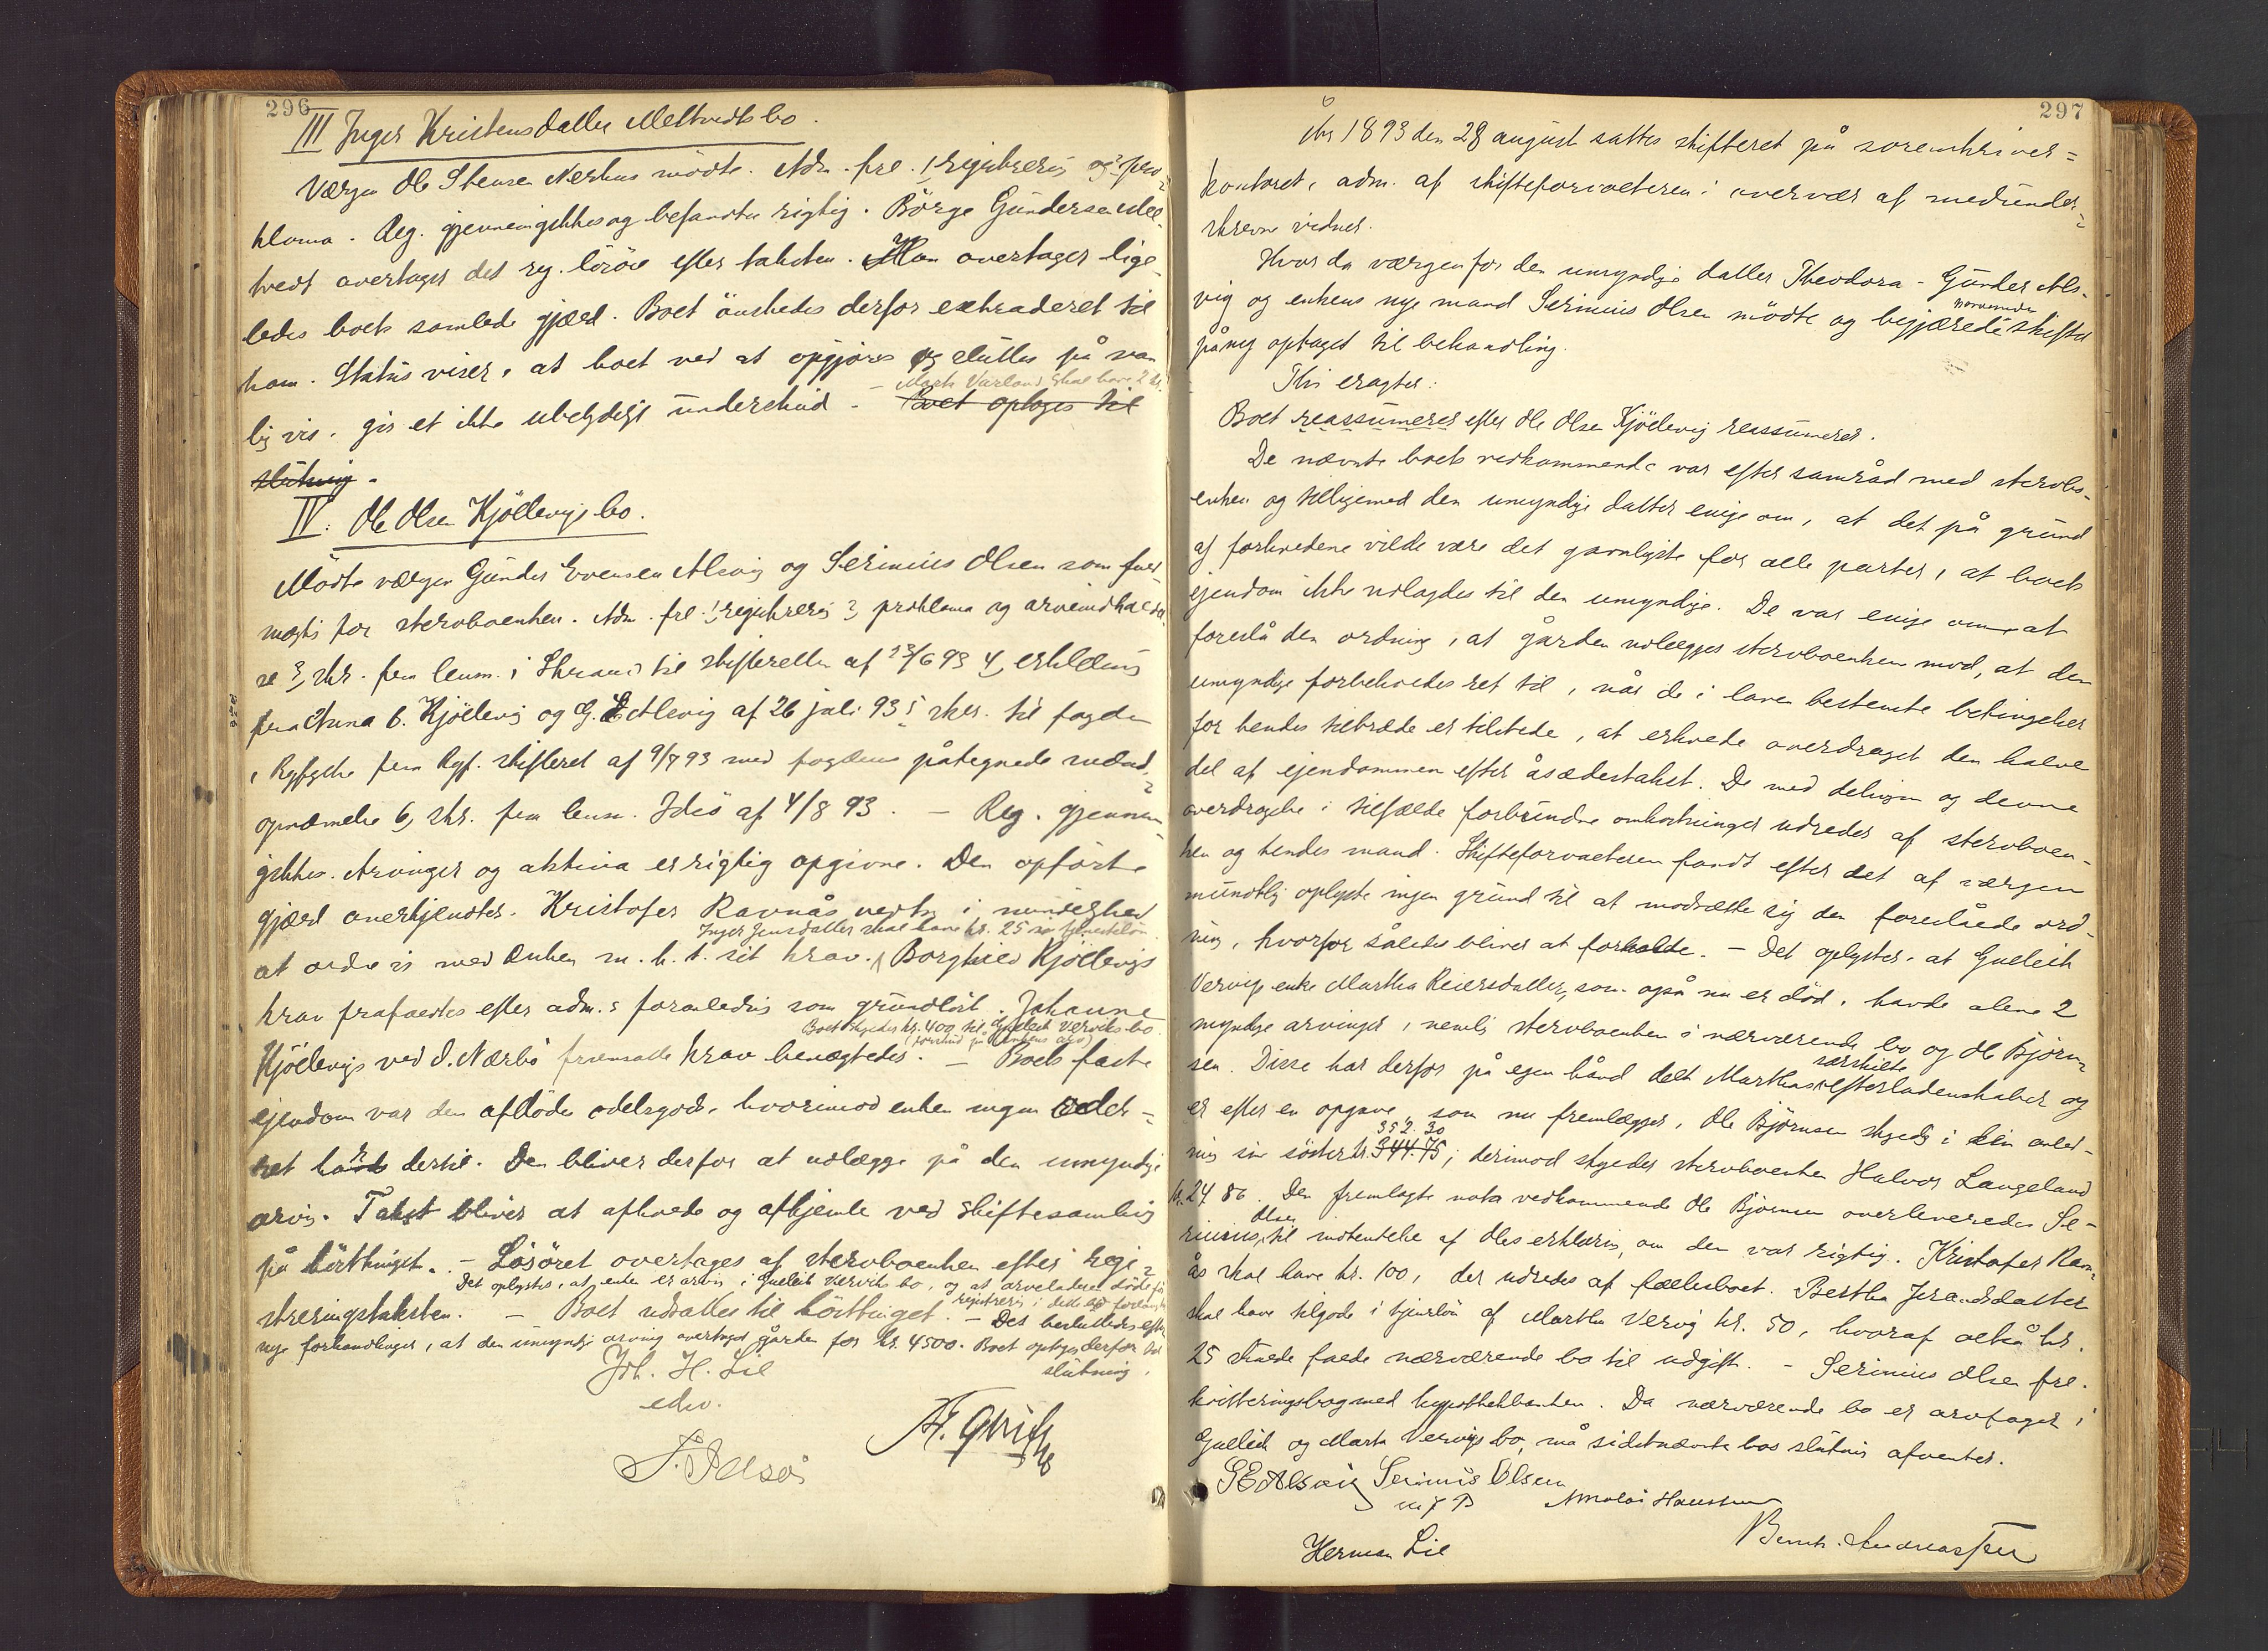 296
III Inger Kristensdatter Meltvedts bo.
Værgen Ole Stensen Nerhus mødte. Adm. fre. 1, registrering og 2, pro-
klama. Reg. gjennemgikkes og befandtes rigtig. Børge Gundersen Mel-
tvedt overtager det reg. løsøre efter taksten. Han overtager lige-
ledes boets samlede gjæld. Boet ønskedes derfor extraderet til
ham. Status viser, at boet ved at opgjøres og sluttes på van-
- Marta Varland skal have 2 kr.
lig vis, gir et ikke ubetydeligt underskud. - Boet optages til
slutning.
IV. Ole Olsen Kjöllevigs bo.
Mødte værgen Gunder Evensen Alsvig og Serinius Olsen som fuld-
mægtig for sterboenken. Adm. fre. 1, registrering 2, proklama og arveindkaldel-
se 3, skr. fra lensm. i Strand til skifteretten af 13/6 93 4, erklæring
fra Anna B. Kjöllevig og G. E Alsvig af 26 juli 93 5, skr. til fogden
i Ryfylke fra Ryf. skifteret af 9/7 93 med fogdens påtegnede mænds-
opnævnelse 6, skr. fra lensm. Idsö af 4/8 93. - Reg. gjennem-
gikkes. Arvinger og aktiva er rigtig opgivne. Den opførte
gjæld anerkjendtes. Kristofer Ravnås vedtog i mindelighed
Inger Jensdatter skal have kr. 25 som tjenestelön
at ordne sig med enken m. h. t. sit krav. Borghild Kjöllevigs
krav frafaldtes efter adm.s foranledning som grundlöst. Johanne
Boet skyldes kr. 400 til Gulleik Verviks bo
(forskud på enkens arv)
Kjöllevigs ved O. Nærbö fremsatte krav benægtedes. - Boets faste
ejendom var den afdödes odelsgods, hvorimod enken ingen odels-
ret havde dertil. Den bliver derfor at udlægge på den umyndige
arving. Takst bliver at afholde og afhjemle ved skiftesamling
på hösttinget. - Lösöret overtages af sterboenken efter regi-
Det oplystes, at enken er arving i Gulleik Verviks bo, og at arveladeren döde för
registrering i dette bo foretoges
streringstaksten. - Boet udsattes til hösttinget. - Det besluttedes efter
nye forhandlinger, at den umyndige arving overtager gården for kr. 4500. Boet optages derfor til
slutning.
Joh. H. Lie
edsv.
297
År 1893 den 28 august sattes skifteret på sorenskriver-
kontoret, adm. af skifteforvalteren i overvær af medunder-
skrevne vidner.
Hvor da værgen for den umyndige datter Theodora - Gunder Als-
vig og enkens nye mand Serinius Olsen mödte og begjærede
nærværende
skiftet
påny optaget til behandling.
Thi eragtes:
Boet reassumeres efter Ole Olsen Kjöllevig reassumeres.
De nævnte boets vedkommende var efter samråd med sterbo-
enken og tilligemed den umyndige datter enige om, at det på grund
af forholdene vilde være det gavnligste for alle parter, at boets
ejendom ikke udlagdes til den umyndige. De var enige om at
foreslå den ordning, at gården udlægges sterboenken mod, at den
umyndige forbeholdes ret til, når de i loven bestemte betingelser
for hendes tiltræde er tilstede, at erholde overdraget den halve
del af ejendommen efter åsædestakst. De med delingen og denne
overdragelse i tilfælde forbundne omkostninger udredes af sterboen-
ken og hendes mand. Skifteforvalteren fandt efter det af værgen
mundtlig oplyste ingen grund til at modsætte sig den foreslåede ord-
ning, hvorfor således bliver at forholde. - Det oplystes, at Gulleik
Vervigs enke Martha Reiersdatter, som også nu er död, havde alene 2
myndige arvinger, nemlig sterboenken i nærværende bo og Ole Björn-
sen. Disse har derfor på egen hånd delt Marthas
særskilte
efterladenskaber og
er efter en opgave, som nu fremlægges, Ole Björnsen skyldig i den anled-
352.30
ning sin söster kr. 344.75; derimod skylder sterboenken Halvor Langeland
kr. 24 86. Den fremlagte nota vedkommende Ole Björnsen overleveredes Se-
Olsen
rinius, til indhentelse af Oles erklæring, om den var rigtig. Kristofer Ravn-
ås skal have kr. 100, der udredes af fællesboet. Bertha Josandsdatter
skal have tilgode i tjenstlön af Martha Vervig kr. 50, hvoraf altså kr.
25 skulde falde nærværende bo til udgift. - Serinius Olsen fre.
kvitteringsbog med hypothekbanken. Da nærværende bo er arvtager i
Gulleik og Marta Vervigs bo, må sidstnævnte bos slutning afventes.
G E Alsvig Serinius Olsen
m f P
Nikolai Haustveit
Herman Lie
Bernh. Andreassen